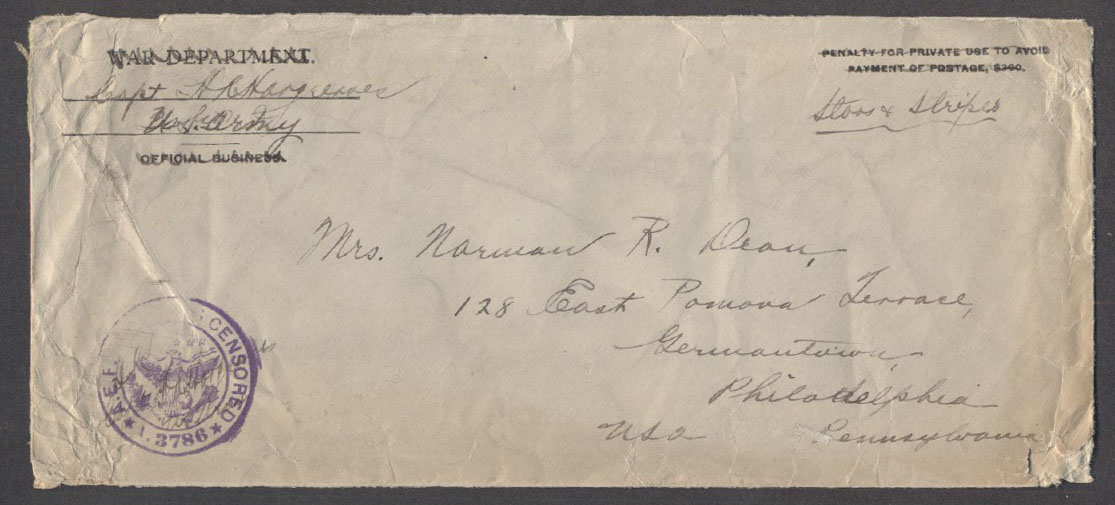 WAR DEPARTMENT.
Capt H C Hargreaves
U.S. Army
OFFICIAL BUSINESS.
PENALTY FOR PRIVATE USE TO AVOID
PAYMENT OF POSTAGE, $300.
Stars & Stripes
Mrs. Norman R. Dean,
128 East Pomona Terrace,
Germantown,
Philadelphia
USA Pennsylvania
A.E.F. CENSORED
A. 3786